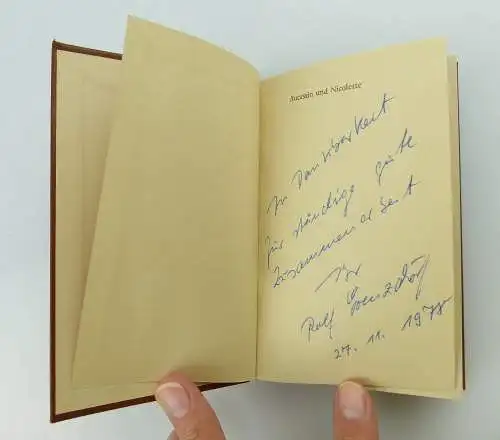 Aucassin und Nicolette
In Dankbarkeit
für ständige gute
Zusammenarbeit
Ihr
Rolf
27. 11. 1978